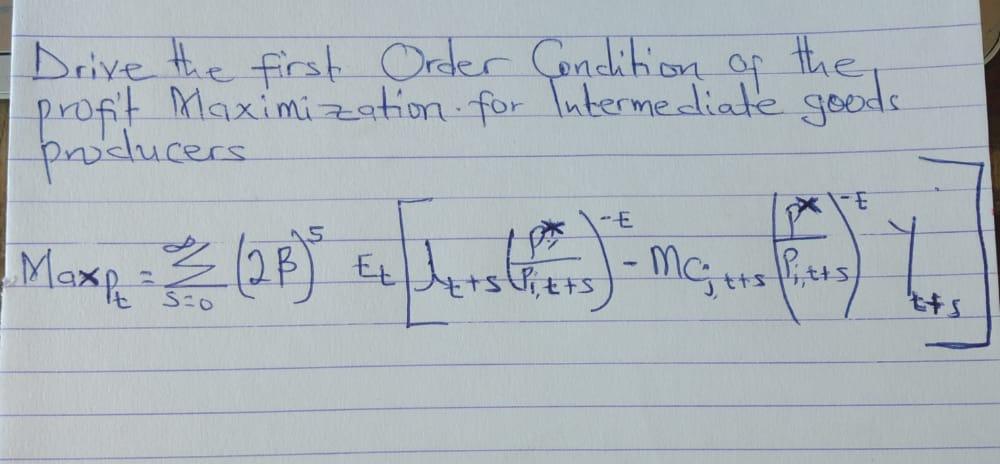 Drive the first Order Condition of the
profit Maximization for Intermediate goods
producers
Max_{P_t} = \sum_{s=0}^{\infty} (2β)^s E_t [ λ_{t+s} (P^*/P_{i,t+s})^{-ε} - MC_{j,t+s} (P^*/P_{i,t+s})^{-ε} Y_{t+s} ]